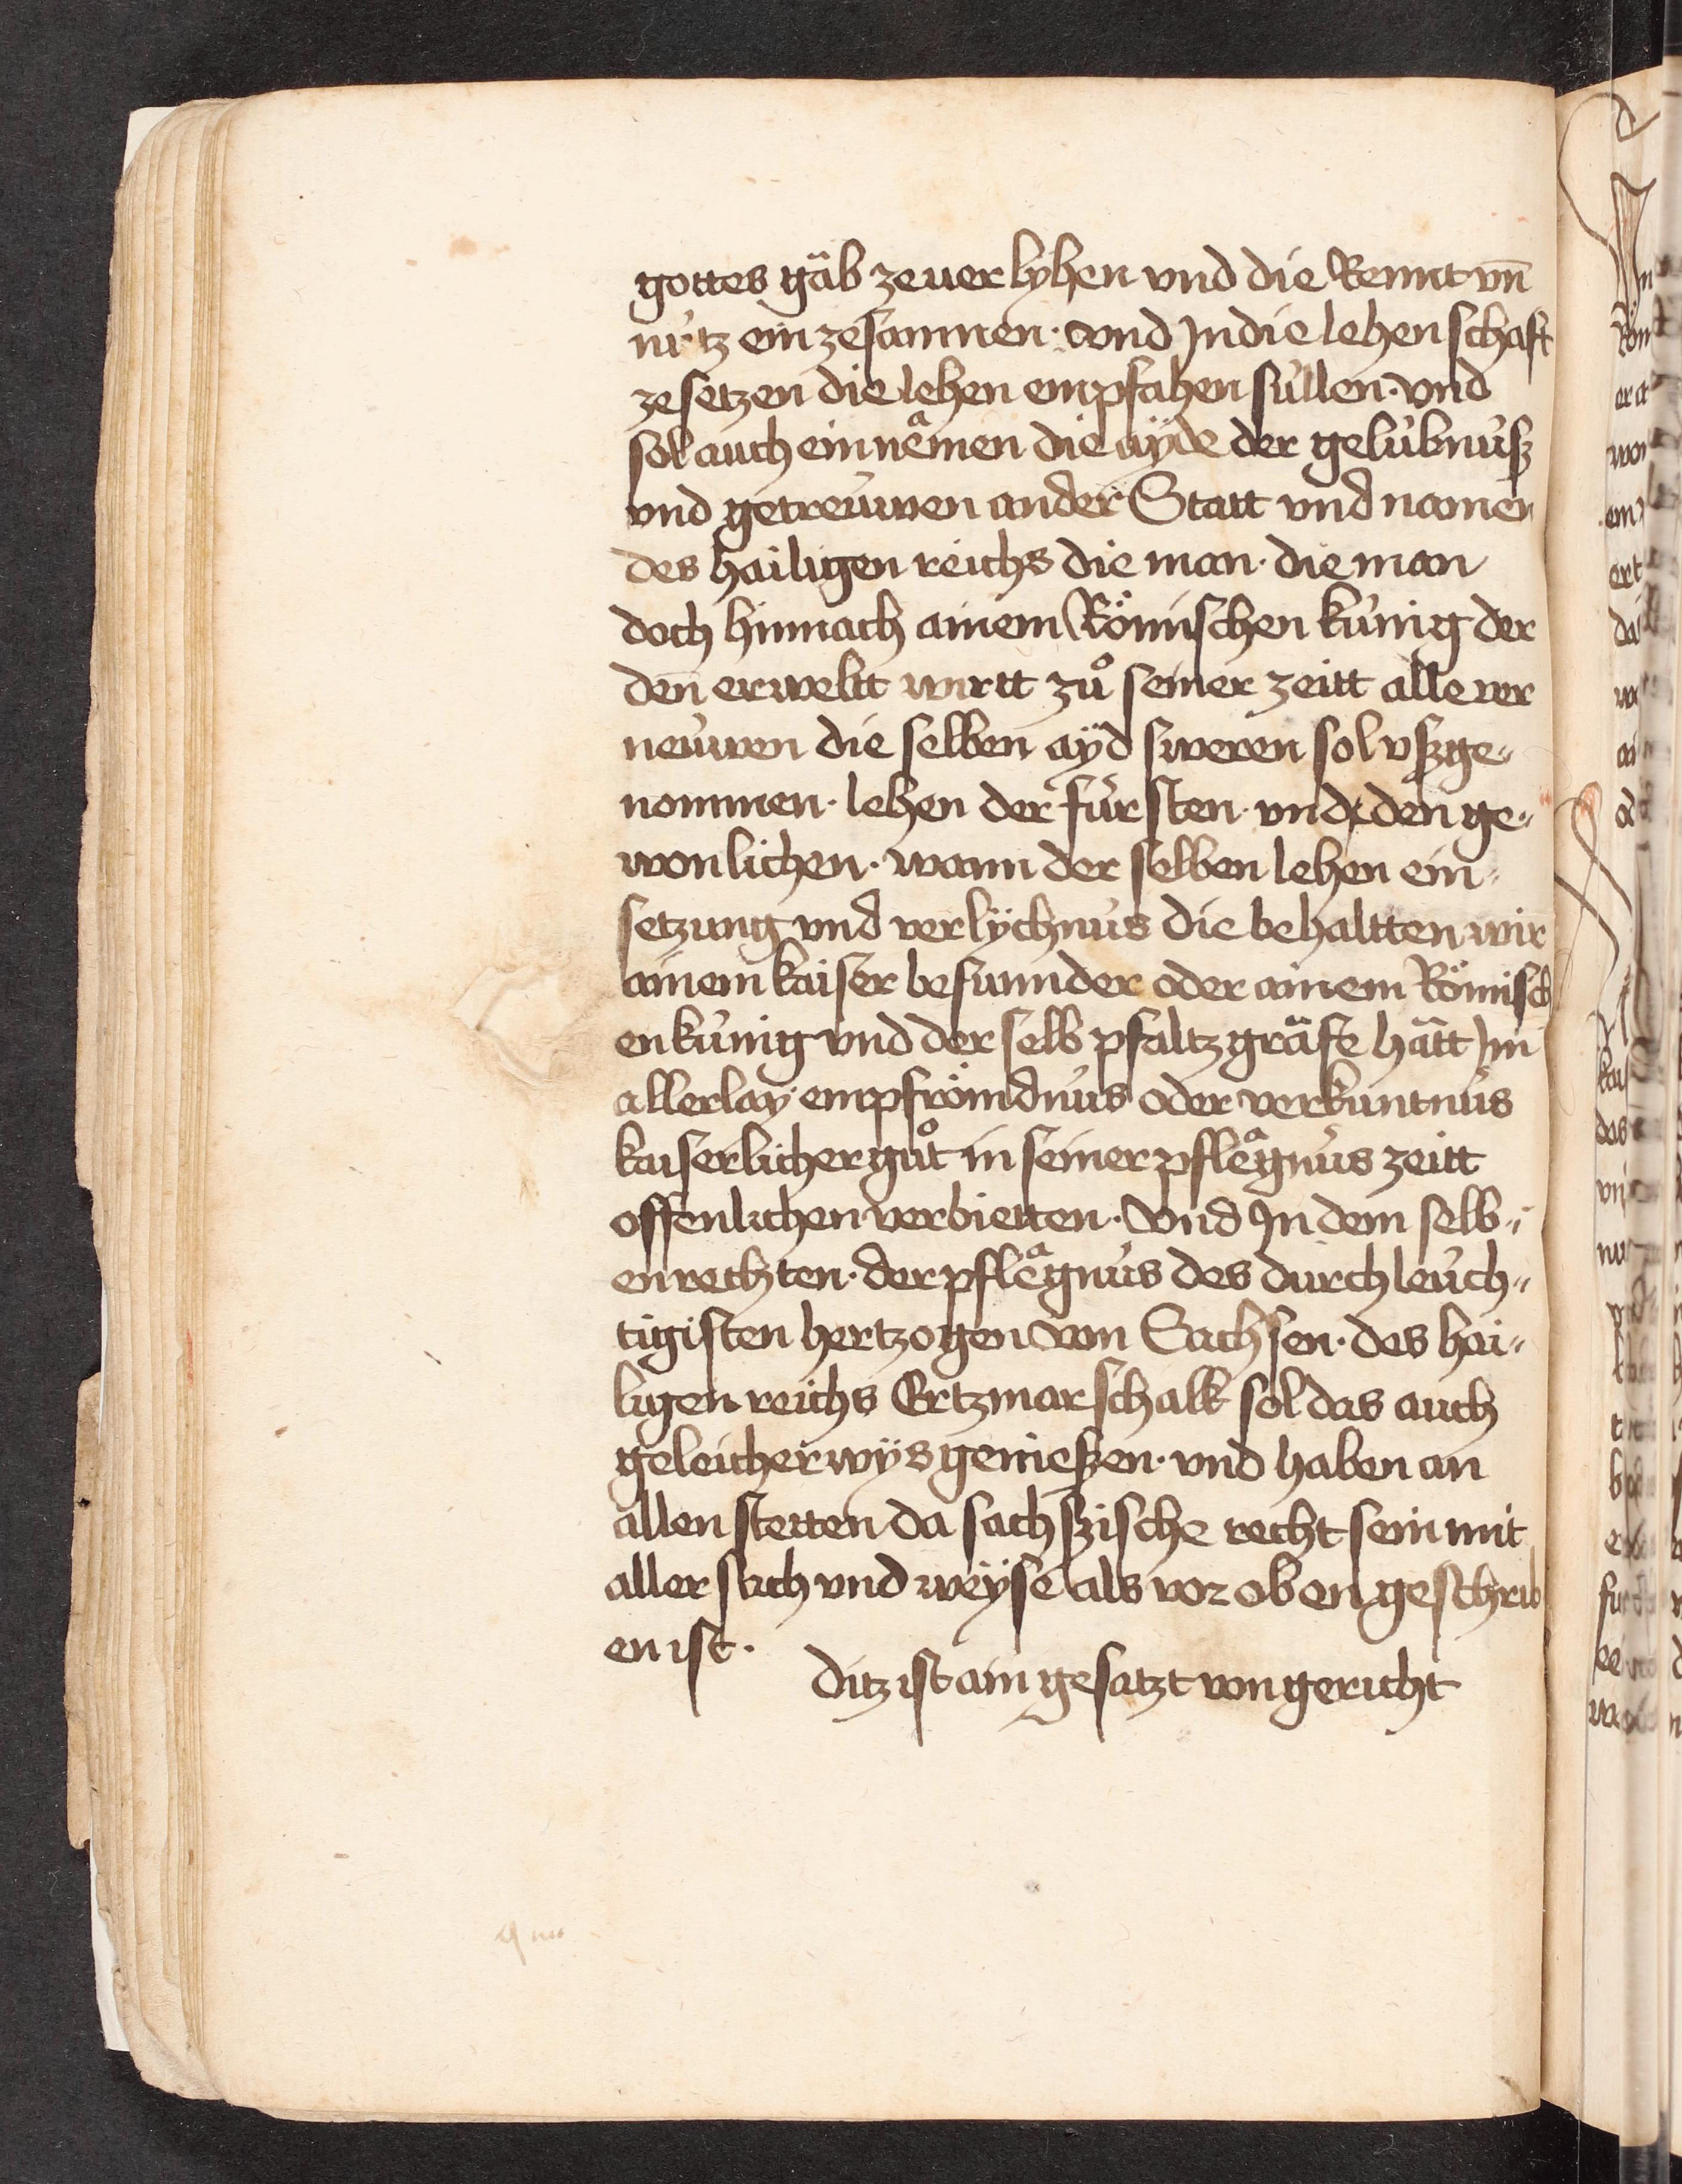 gottes gäb ze uerlyhen vnd die Rennt vn̄
nütz ein zesamnen · vnd Jn die lehenschaft
ze setzen die lehen empfahen süllen · vnd
sol auch ein nemen die ayde der gelübnusz
vnd getreuwen an der Statt vnd namen
des hailigen reichs die man · die man
doch hinnach ainem Römischen künig der
den̄ erweltt wirtt zů seiner zeitt alle ver
neuwen die selben aÿd sweren sol vszge„
nommen · lehen der fürsten · vnd den ge„
wonlichen · wann der selben lehen ein„
setzung vnd verlÿchnus die behaltten wir
ainem kaiser besunnder oder ainem Römisch
en künig vnd der selb pfaltzgräfe hätt Jm
allerlay empfrömdnus oder verkuntnus
kaiserlicher gůt in seiner pflegnus zeitt
offenlichen verbietten · Vnd Jn dem selb„
en rechten · der pflegnus des durchleuch„
tigisten hertzogen von Sachsen · des hai„
ligen reichs Ertzmarschalk sol das auch
geleicher wÿs genieszen · vnd haben an
allen stetten da sachszische recht sein mit
aller sach vnd weÿse als vor oben geschrib
en ist ·
Ditz ist ain gesatzt von gericht